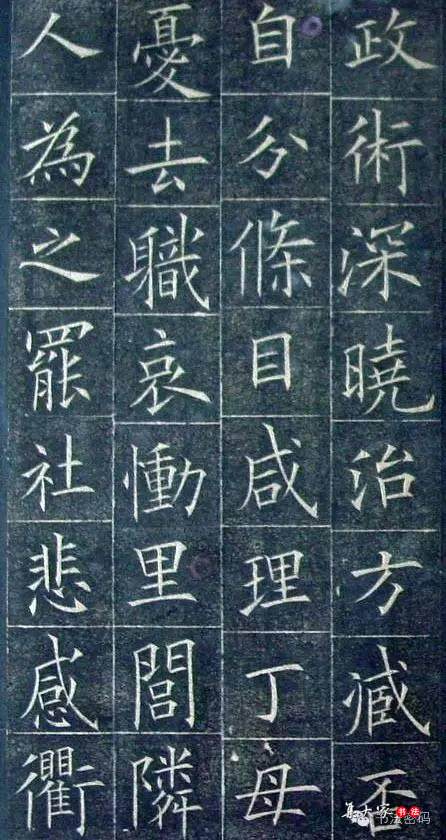 政術深曉治方臧否
自分條目咸理丁母
憂去職哀慟里閭隣
人為之罷社悲感衢
集大家书法
书法密码